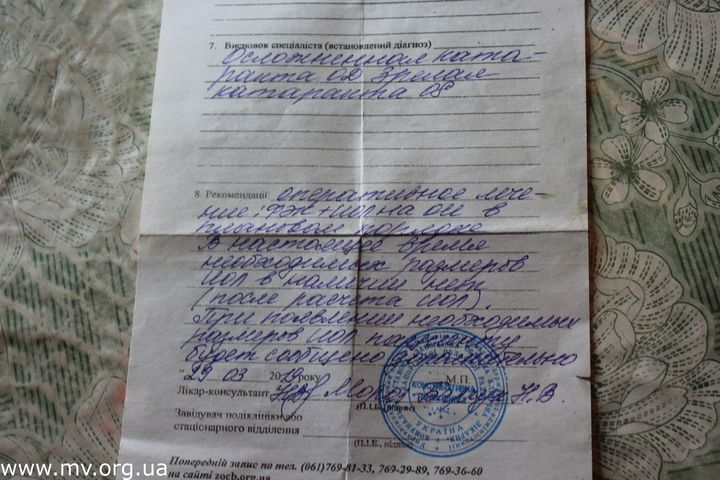 7. Висновок спеціаліста (встановлений діагноз)
Осложненная ката-
ракта OD Зрелая
катаракта OS
8. Рекомендації: оперативное лече-
ние: ФЭК+ИОЛ на ОИ в
плановом порядке
В настоящее время
необходимых размеров
ИОЛ в наличии нет
(после расчета ИОЛ).
При появлении необходимых
размеров ИОЛ
будет сообщено дополнительно
" 29 " 03 20 року М.П.
Лікар-консультант Н.В.
(П.І.Б., підпис)
Завідувач поліклініки або
стаціонарного відділення
(П.І.Б., підпис)
КОНСУЛЬТАТИВНА
УКРАЇНА
Попередній запис по тел. (061)769-81-33, 769-29-89, 769-36-60
на сайті zocb.org.ua
www.mv.org.ua